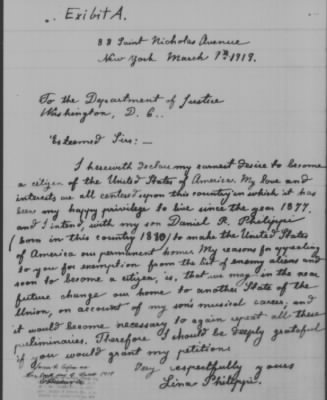 Exibit A.
88 Saint Nicholas Avenue
New York March 7th 1919.
To the Department of Justice
Washington, D. C..
Esteemed Sirs: —
I herewith declare my earnest desire to become
a citizen of the United States of America. My love and
interests are all centered upon this country in which it has
been my happy privilege to live since the year 1877.
and I intend, with my son Daniel R. Philippi
(born in this country 1880) to make the United States
of America our permanent home. My reasons for appealing
to you for exemption from the list of enemy aliens and
soon to become a citizen, is, that we may in the near
future change our home to another State of the
Union, on account of my son's musical career, and
it would become necessary to again repeat all these
preliminaries. Therefore I should be deeply grateful
if you would grant my petition.
Very respectfully yours
Lina Philippi.